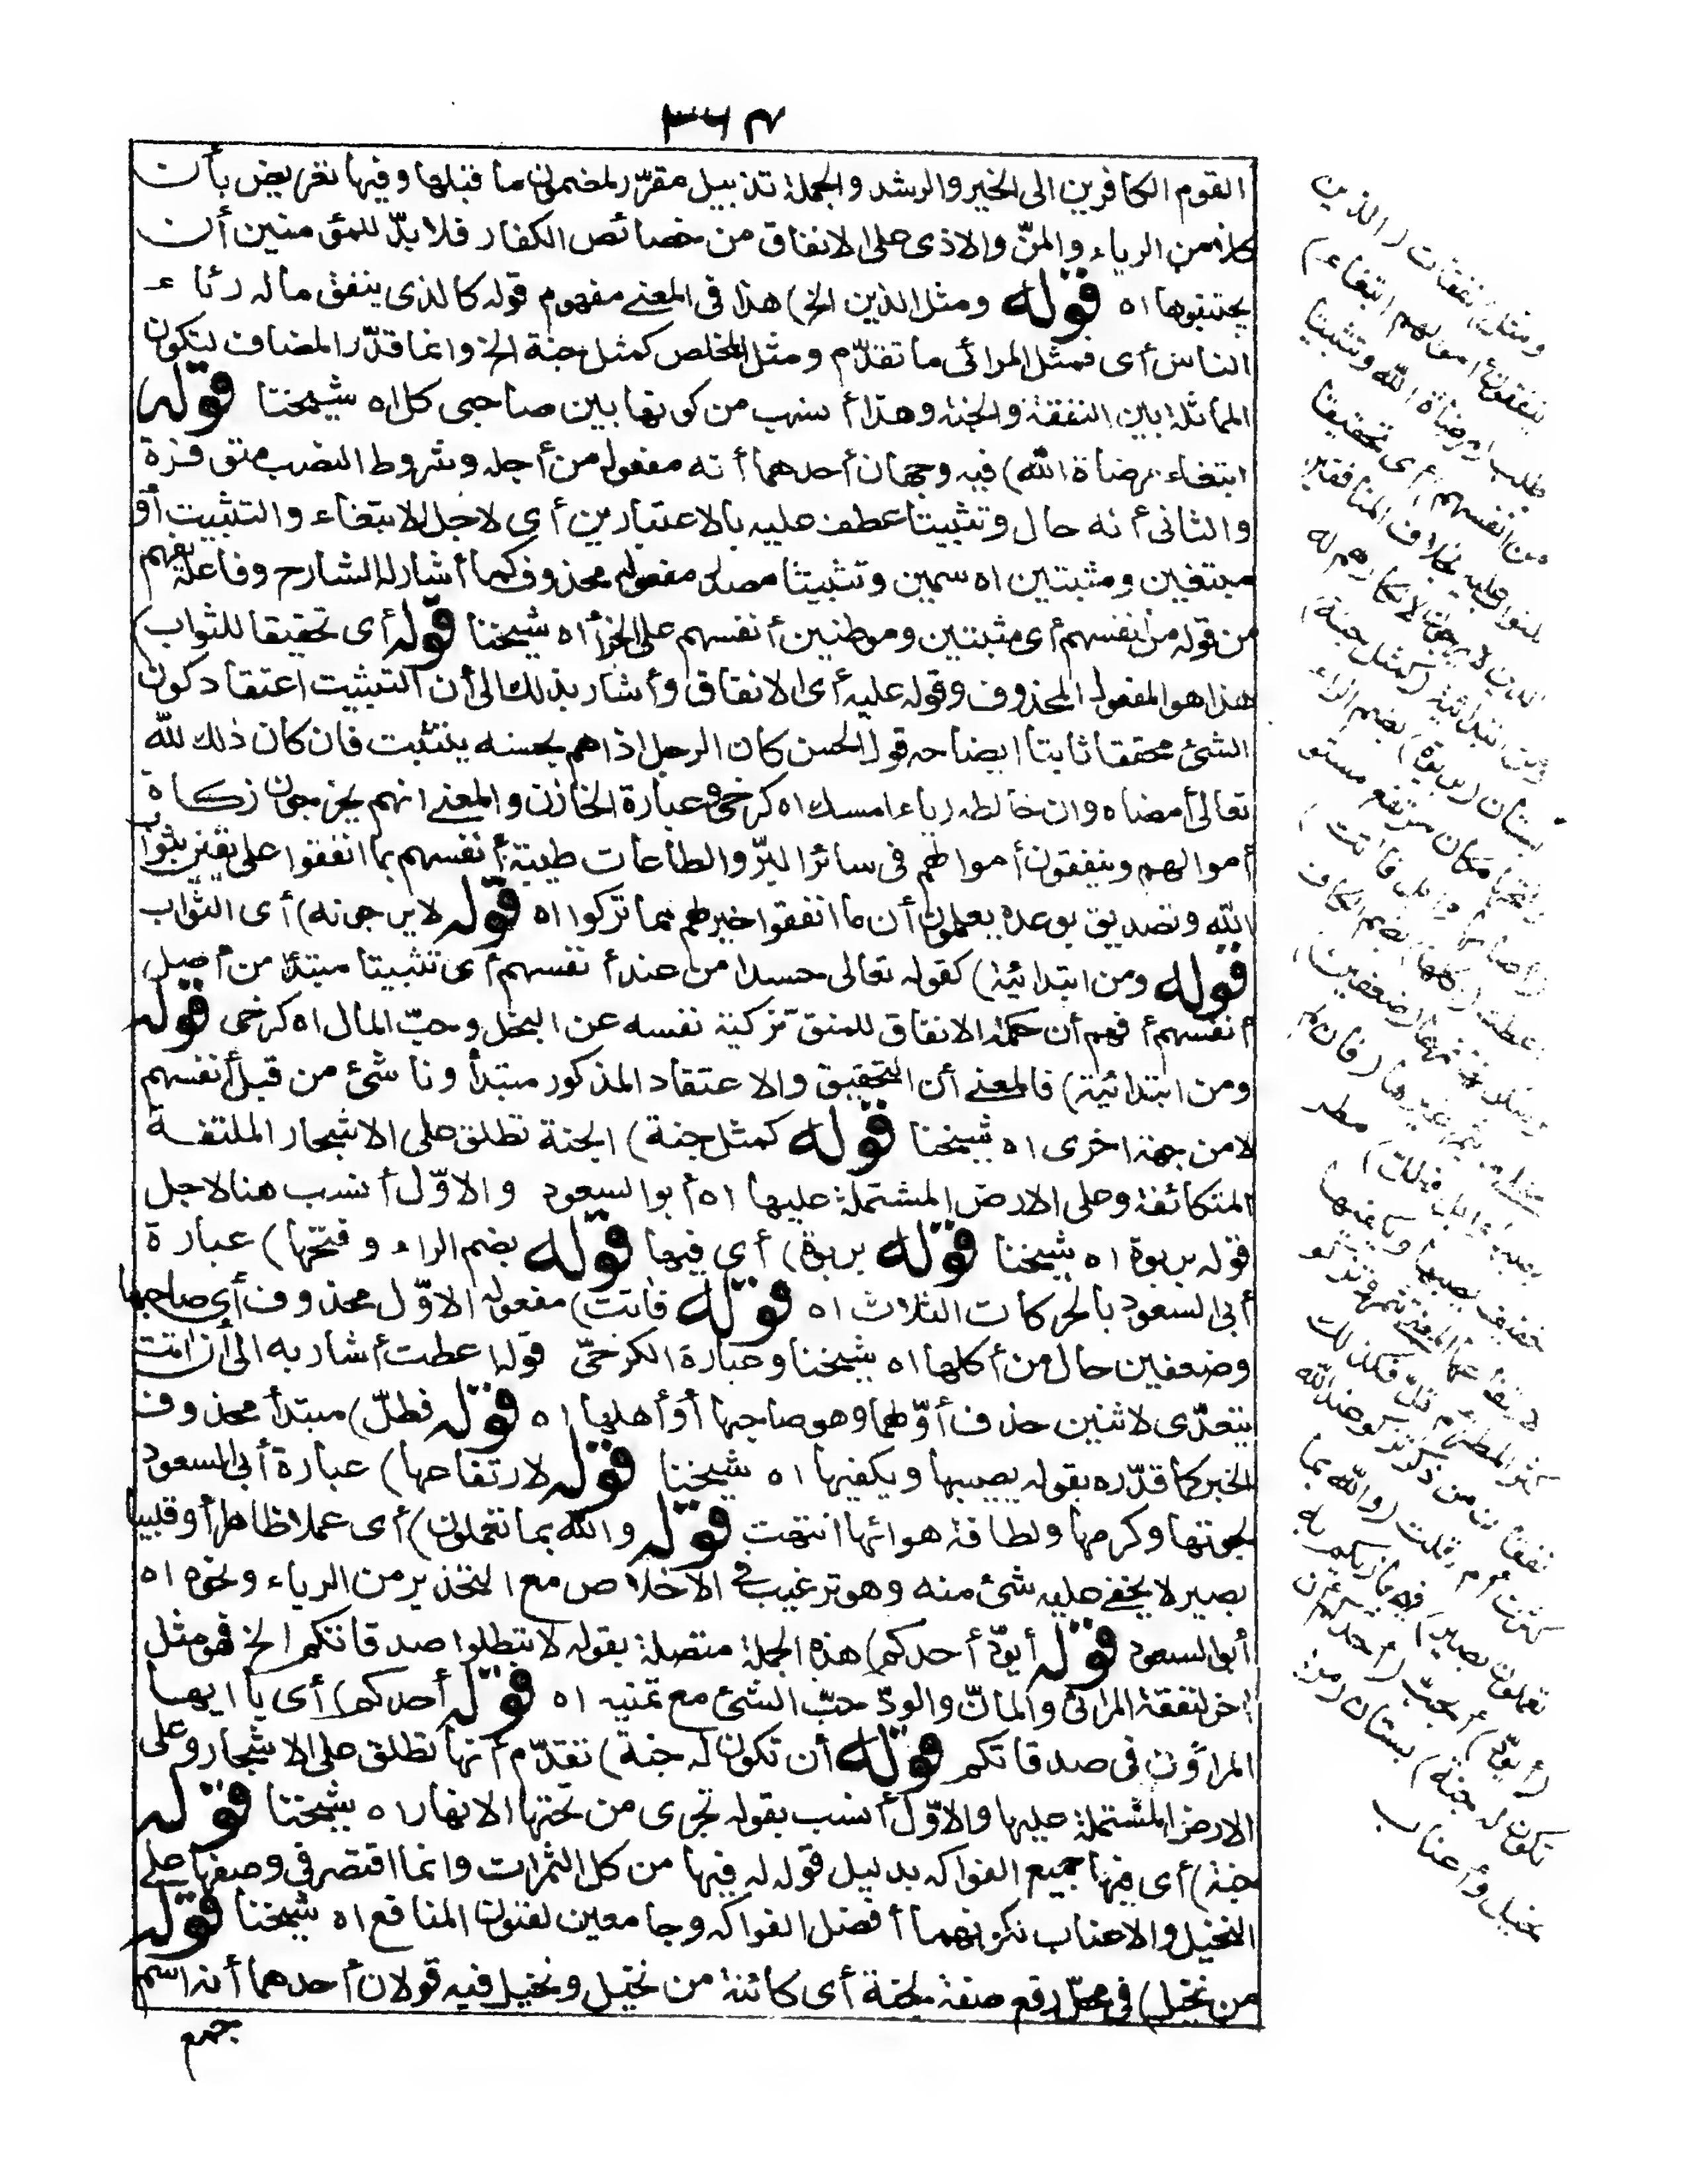 ٣٦٣
القوم الكافرين الى الخير والرشد والجملة تذييل مقرّر لمضمون ما قبلها وفيها تعريض بأن
كلا من الرياء والمنّ والاذى على الانفاق من خصائص الكفار فلا بدّ للمؤمنين أن
يجتنبوها اه قوله ومثل الذين الخ) هذا فى المعنى مفهوم قوله كالذى ينفق ماله رئاء
الناس أى فمثل المرائى ما تقدّم ومثل المخلص كمثل جنة الخ وانما قدّر المضاف ليكون
المماثلة بين النفقة والجنة وهذا أنسب من كونها بين صاحبى كل اه شيخنا قوله
ابتغاء مرضاة الله) فيه وجهان أحدهما أنه مفعول من أجله وشروط النصب متوفرة
والثانى أنه حال وتثبيتا عطف عليه بالاعتبارين أى لاجل الابتغاء والتثبيت أو
مبتغين ومثبتين اه سمين وتثبيتا مصدر مفعوله محذوف كما أشار له الشارح وفاعله يفهم
من قوله من أنفسهم أى مثبتين وموطنين أنفسهم على الجزاء اه شيخنا قوله أى تحقيقا للثواب)
هذا هو المفعول المحذوف وقوله عليه أى الانفاق وأشار بذلك الى أن التثبيت اعتقاد كون
الشئ محققا ثابتا ايضاحه قول الحسن كان الرجل اذا هم بحسنه يتثبت فان كان ذلك لله
تعالى أمضاه وان خالطه رياء امسك اه كرخى وعبارة الخازن والمعنى انهم يخرجون زكاة
أموالهم وينفقون أموالهم فى سائر البرّ والطاعات طيبة أنفسهم بما انفقوا على يقين بثواب
الله وتصديق بوعده يعلمون أن ما انفقوا خير لهم مما تركوا اه قوله لا يرجونه) أى الثواب
قوله ومن ابتدائية) كقوله تعالى حسدا من عند أنفسهم أى تثبيتا مبتدأ من أصل
أنفسهم أفهم أن حكمة الانفاق للمنفق تزكية نفسه عن البخل وحبّ المال اه كرخى قوله
ومن ابتدائية) فالمعنى أن التحقيق والاعتقاد المذكور مبتدأ وناشئ من قبل أنفسهم
لا من جهة اخرى اه شيخنا قوله كمثل جنة) الجنة تطلق على الاشجار الملتفة
المتكاثفة وعلى الارض المشتملة عليها اه أبو السعود والاوّل أنسب هنا لاجل
قوله بربوة اه شيخنا قوله بربوة) أى فيها قوله بضم الراء وفتحها) عبارة
أبى السعود بالحركات الثلاث اه قوله فآتت) مفعوله الاوّل محذوف أى صاحبها
وضعفين حال من أكلها اه شيخنا وعبارة الكرخىّ قوله اعطت أشار به الى أن آتت
يتعدّى لاثنين حذف أوّلهما وهو صاحبها أو أهلها اه قوله فطلّ) مبتدأ محذوف
الخبر كما قدّره بقوله يصيبها ويكفيها اه شيخنا قوله لارتفاعها) عبارة أبى السعود
لجودتها وكرمها ولطافة هوائها انتهت قوله والله بما تعملون) أى عملا ظاهرا أو قلبيا
بصير لا يخفى عليه شئ منه وهو ترغيب فى الاخلاص مع التحذير من الرياء ونحوه اه
أبو السعود قوله أيودّ أحدكم) هذه الجملة متصلة بقوله لا تبطلوا صدقاتكم الخ فهو مثل
اخر لنفقة المرائى والمانّ والودّ حبّ الشئ مع تمنيه اه قوله أحدكم) أى يا ايها
المراؤن فى صدقاتكم قوله أن تكون له جنة) تقدّم أنها تطلق على الاشجار وعلى
الارض المشتملة عليها والاوّل أنسب بقوله تجرى من تحتها الانهار اه شيخنا قوله
جنة) أى فيها جميع الفواكه بدليل قوله له فيها من كل الثمرات وانما اقتصر فى وصفها على
النخيل والاعناب لكونهما أفضل الفواكه وجامعين لفنون المنافع اه شيخنا قوله
من نخيل) فى محلّ رفع صفة لجنة أى كائنة من نخيل ونخيل فيه قولان أحدهما أنه اسم
جمع
ومثل) نفقات (الذين
ينفقون أموالهم ابتغاء)
طلب (مرضاة الله وتثبيتا
من أنفسهم) أى تحقيقا
للثواب عليه بخلاف المنافقين
الذين لا يرجونه لانكارهم له
ومن ابتدائية (كمثل جنة)
بستان (بربوة) بضم الراء
وفتحها مكان مرتفع مستو
(أصابها وابل فآتت)
اعطت (أكلها) بضم الكاف
وسكونها ثمرها (ضعفين)
مثلى ما يثمر غيرها (فان لم
يصبها وابل فطلّ) مطر
خفيف يصيبها ويكفيها
لارتفاعها المعنى تثمر وتزكو
كثر المطر أم قلّ فكذلك
نفقات من ذكر تزكو عند الله
كثرت أم قلت (والله بما
تعملون بصير) فيجازيكم به
(أيودّ) أيحبّ (أحدكم أن
تكون له جنة) بستان (من
نخيل وأعناب